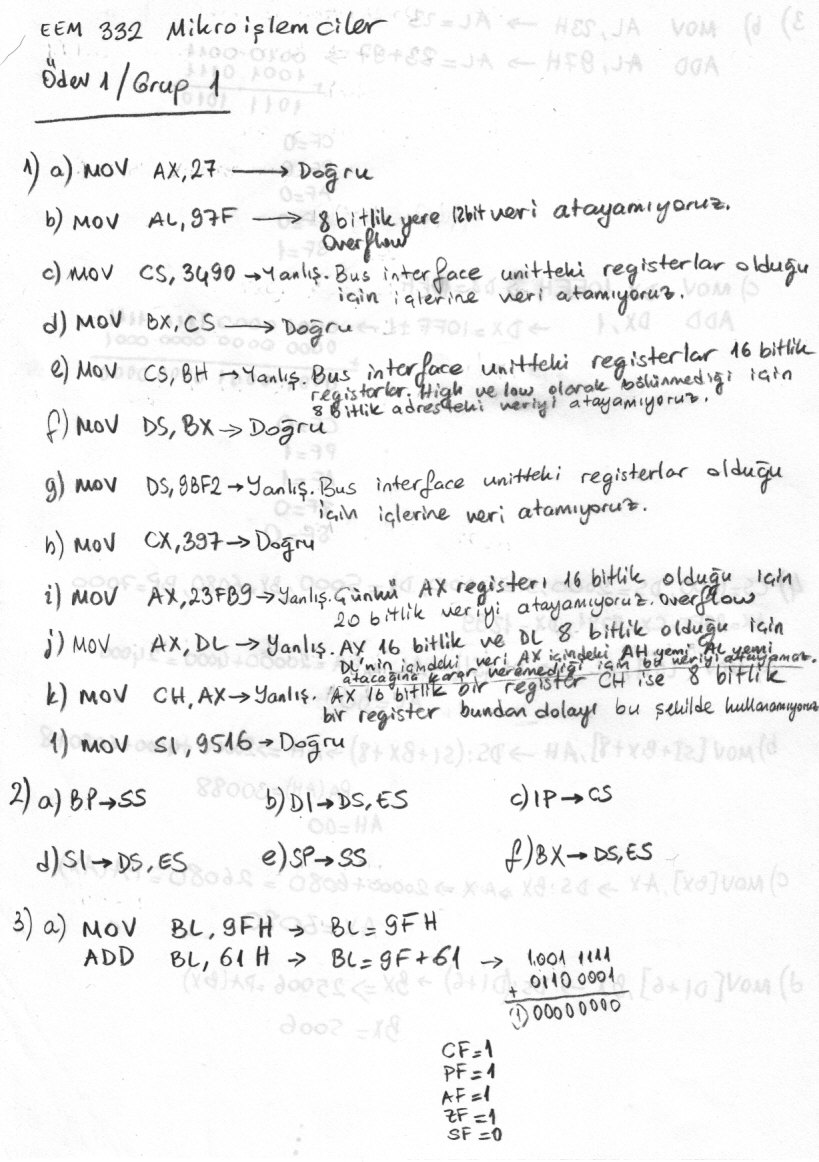 EEM 332 Mikroişlemciler
Ödev 1/Grup 1
1) a) MOV AX,27 → Doğru
b) MOV AL,97F → 8 bitlik yere 12bit veri atayamıyoruz.
Overflow
c) MOV CS,3490 → Yanlış. Bus interface unitteki registerlar olduğu
için içlerine veri atamıyoruz.
d) MOV BX,CS → Doğru
e) MOV CS,BH → Yanlış. Bus interface unitteki registerlar 16 bitlik
registerlar. High ve low olarak bölünmediği için
8 Bitlik adresteki veriyi atayamıyoruz.
f) MOV DS,BX → Doğru
g) MOV DS,9BF2 → Yanlış. Bus interface unitteki registerlar olduğu
için içlerine veri atamıyoruz.
h) MOV CX,397 → Doğru
i) MOV AX,23FB9 → Yanlış. Çünkü AX registeri 16 bitlik olduğu için
20 bitlik veriyi atayamıyoruz. Overflow
j) MOV AX,DL → Yanlış. AX 16 bitlik ve DL 8 bitlik olduğu için
DL'nin içindeki veri AX içindeki AH yemi AL yemi
atacağına karar veremediği için bu veriyi atayamaz.
k) MOV CH,AX → Yanlış. AX 16 bitlik bir register CH ise 8 bitlik
bir register bundan dolayı bu şekilde kullanamıyoruz
l) MOV SI,9516 → Doğru
2) a) BP→SS b) DI→DS,ES c) IP→CS
d) SI→DS,ES e) SP→SS f) BX→DS,ES
3) a) MOV BL,9FH → BL=9FH
ADD BL,61H → BL=9F+61 → 1001 1111
+ 0110 0001
(1)00000000
CF=1
PF=1
AF=1
ZF=1
SF=0